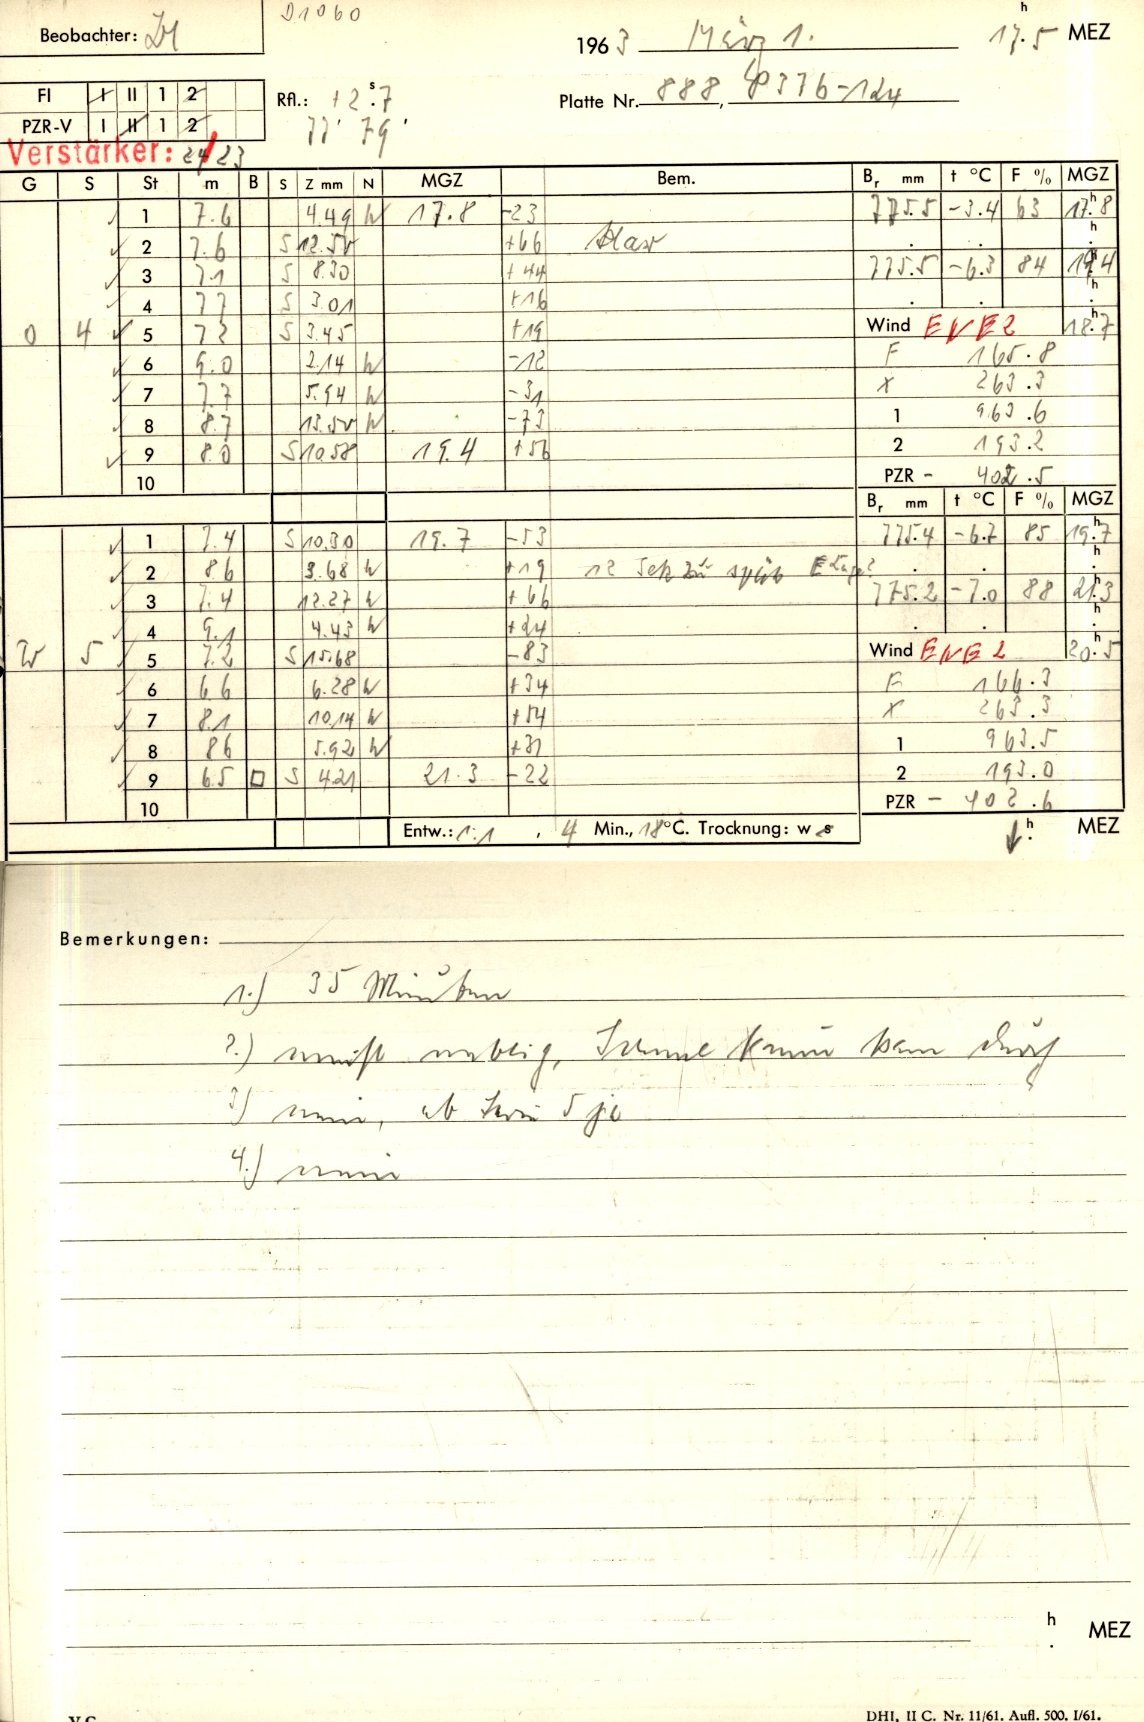 D1060
Beobachter:
1963 März 1. 17.5 h MEZ
FI I II 1 2
Rfl.: +2.7 s
Platte Nr. 888, 8376-124
PZR-V I II 1 2
77' 79'
Verstärker: 24/23
G S St m B S Z mm N MGZ Bem. Br mm t °C F % MGZ
1 7.6 4.49 W 17.8 -23 775.5 -3.4 63 17.8 h
2 7.6 S 12.50 +66 klar
3 7.1 S 8.30 +44 775.5 -6.3 84 19.4 h
4 7.7 S 3.01 +16
O 4 5 7.2 S 3.45 +19 Wind ENE 2 18.7 h
6 9.0 2.14 W -12 F 165.8
7 7.7 5.94 W -31 X 263.3
8 8.7 13.50 W -73 1 963.6
9 8.0 S 10.58 19.4 +56 2 193.2
10 PZR - 402.5
Br mm t °C F % MGZ
1 7.4 S 10.30 19.7 -53 775.4 -6.7 85 19.7 h
2 8.6 3.68 W +19 12 Sek zu spät
3 7.4 12.27 W +66 775.2 -7.0 88 21.3 h
4 9.1 4.43 W +24
W 5 5 7.2 S 15.68 -83 Wind ENE 2 20.5 h
6 6.6 6.28 W +34 F 166.3
7 8.1 10.14 W +54 X 263.3
8 8.6 5.92 W +31 1 963.5
9 6.5 □ S 4.21 21.3 -22 2 193.0
10 PZR - 402.6
Entw.: 1:1, 4 Min., 18°C. Trocknung: w s h MEZ
Bemerkungen:
1.) 35 Minuten
2.) meist neblig, Sonne kam durch
3) nein, ab 5 ja
4.) nein
h MEZ
DHI. II C. Nr. 11/61. Aufl. 500. I/61.